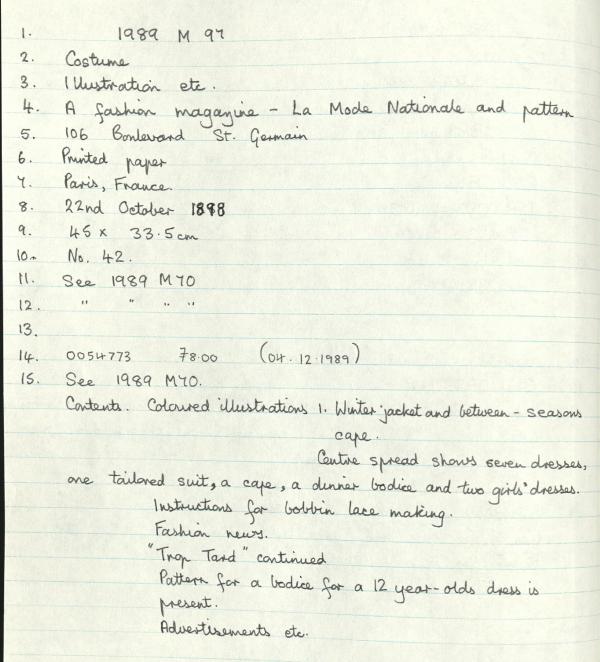 1. 1989 M 97
2. Costume
3. Illustration etc.
4. A fashion magazine - La Mode Nationale and pattern
5. 106 Boulevard St. Germain
6. Printed paper
7. Paris, France.
8. 22nd October
9. 45 x 33.5cm
10. No. 42.
11. See 1989 M70
12. " " " "
13.
14. 0054773 78.00 (04.12.1989)
15. See 1989 M70.
Contents. Coloured illustrations 1. Winter jacket and between-seasons
cape.
Centre spread shows seven dresses,
one tailored suit, a cape, a dinner bodice and two girls' dresses.
Instructions for bobbin lace making.
Fashion news.
"Trop Tard" continued
Pattern for a bodice for a 12 year-olds dress is
present.
Advertisements etc.